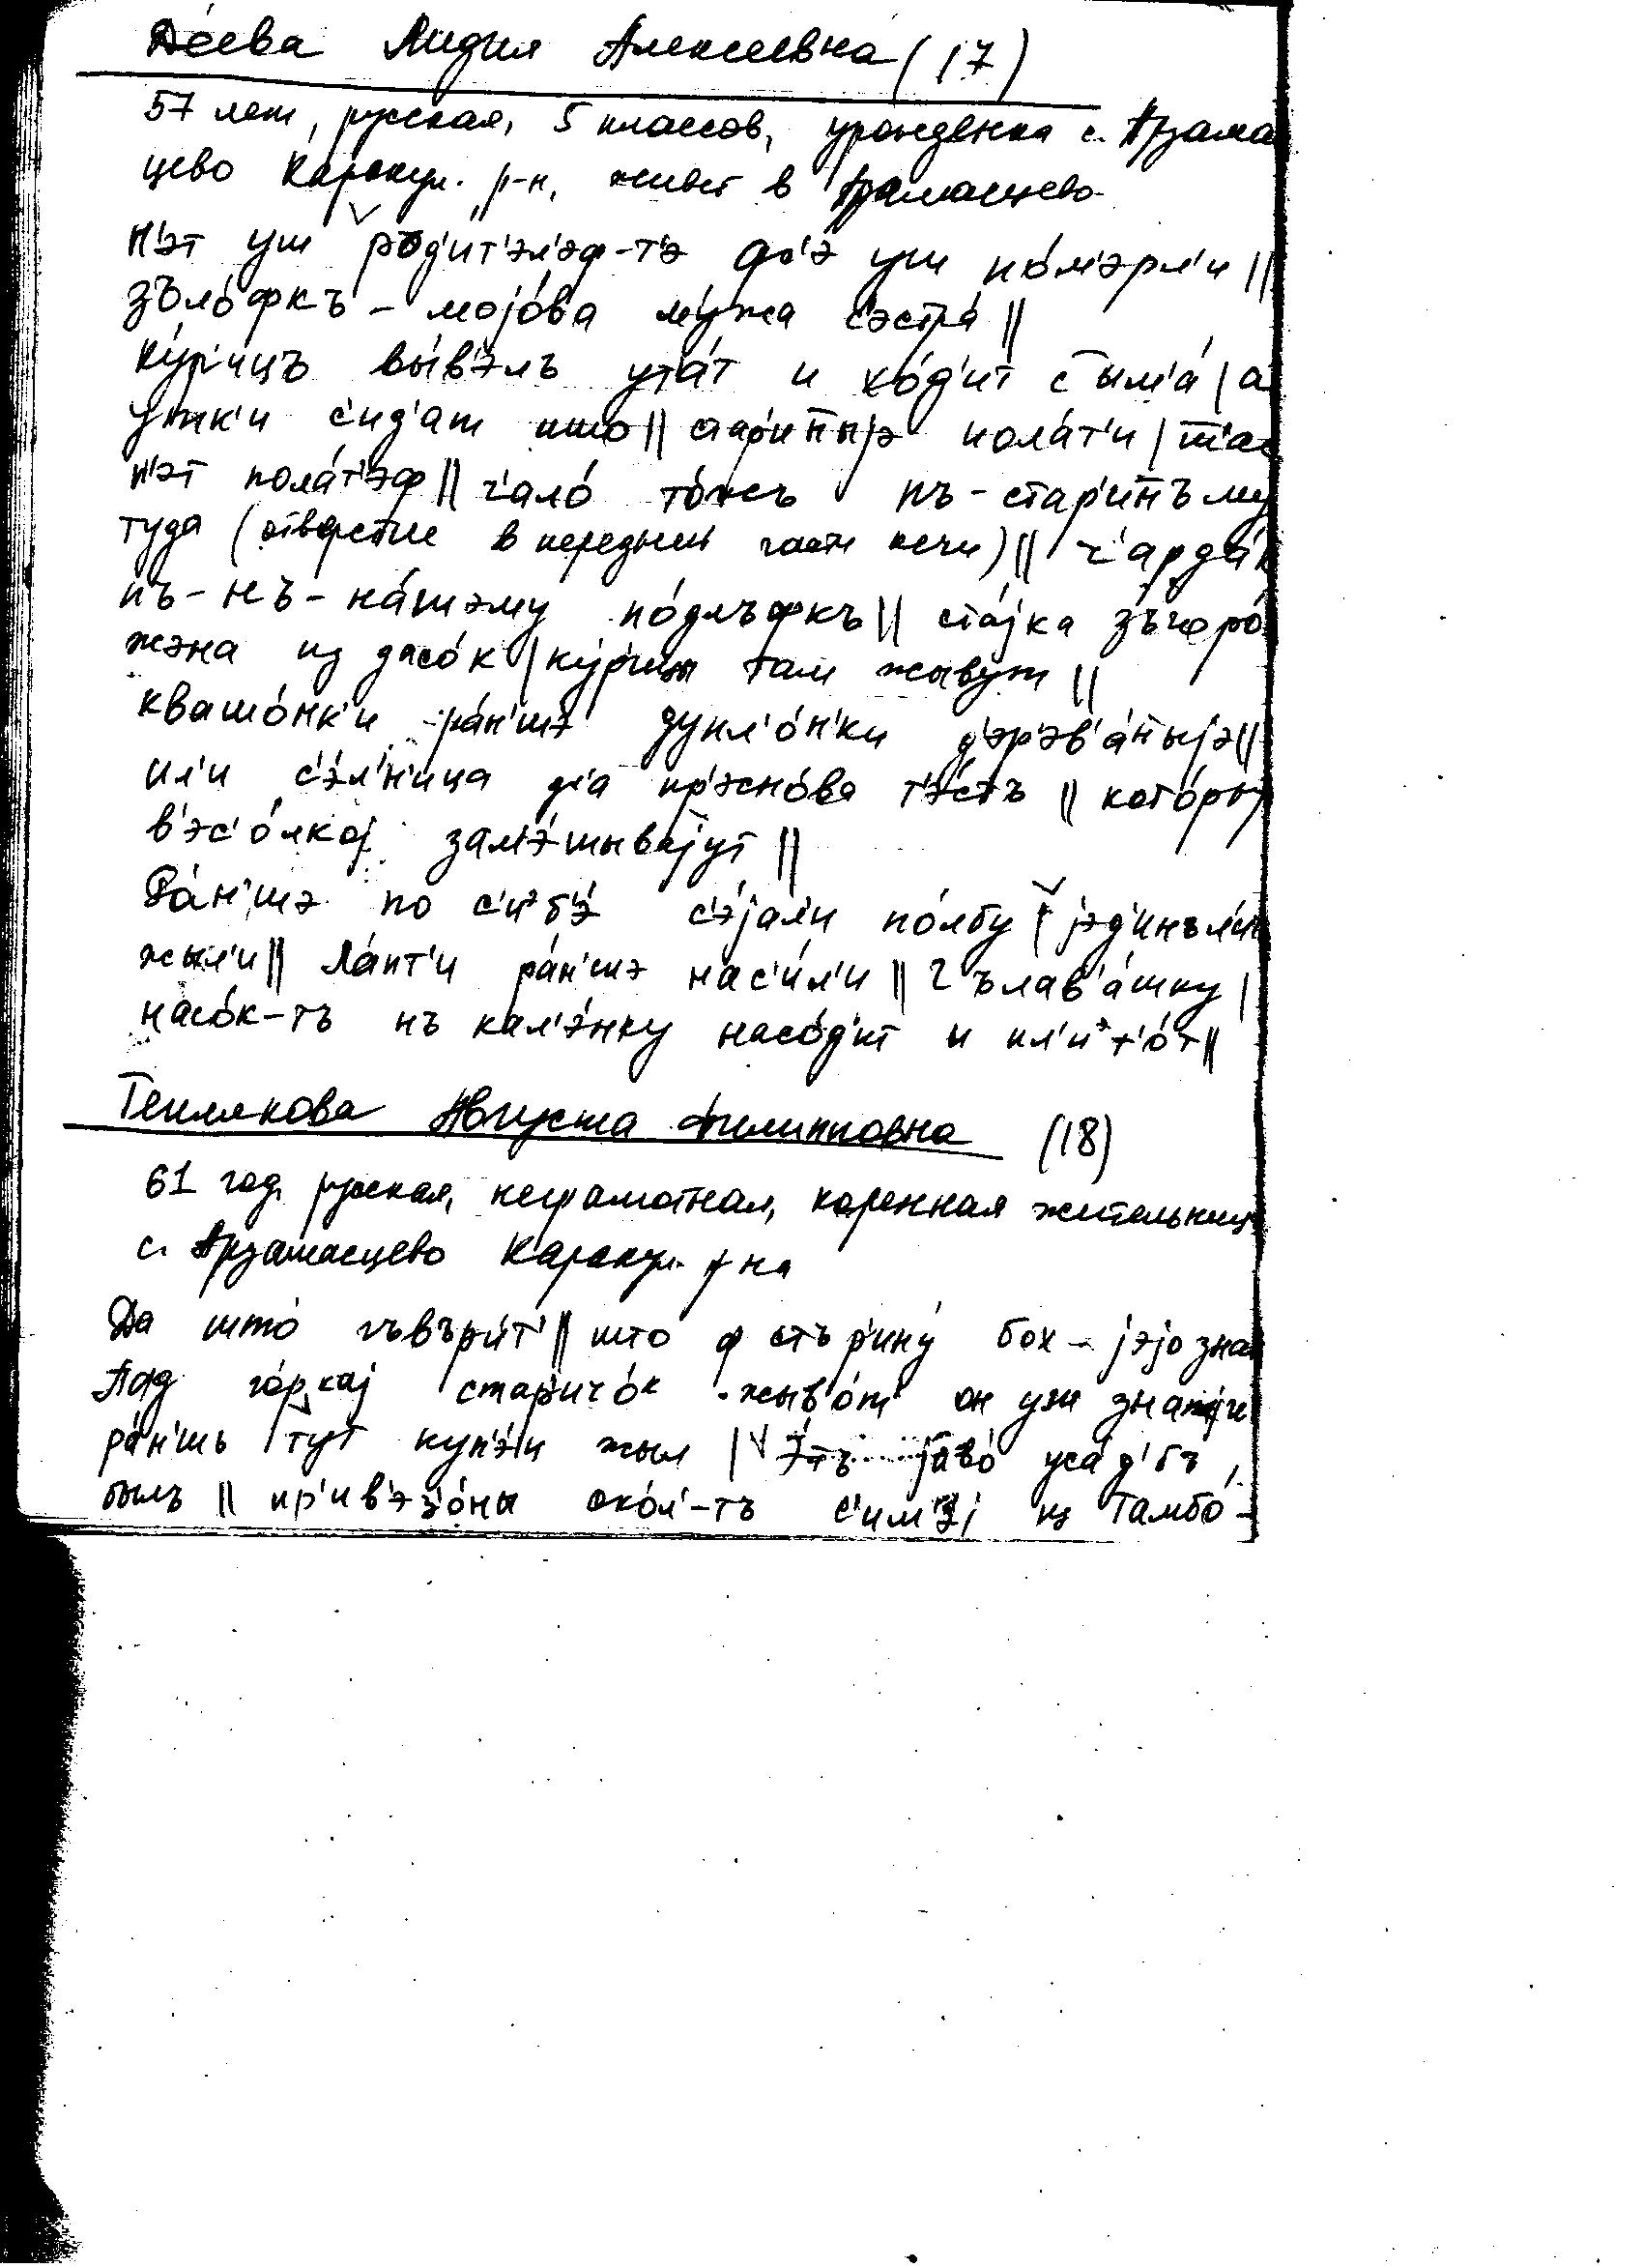 Деева Лидия Алексеевна (17)
57 лет, русская, 5 классов, урожденка с. Арзама
цево Каракул. р-н, живет в Арзамасцево
н'эт уш род'ит'эл'эф-т'э фс'э уш по́м'эрл'и ||
зъло́фкъ – моjо́ва му́жа с'эстра́ ||
ку́р'ицъ вы́в'элъ ут'а́т и хо́д'ит с ым'а́ | а
утк'и с'ид'ат што || стар'ин̄ыjэ пола́т'и |
н'эт пола́т'эф || ч'ало́ то́жъ пъ-стар'ин̄ъму
туда (отверстие в передней части печи) || ч'арда́к
пъ-нъ-на́шэму по́длъфкъ || ста́jка зъгоро́
жэна из дасо́к | ку́р'ицы там жывут ||
квашо́нк'и ра́н'шэ дупл'о́нки д'эр'эв'а́н̄ыjэ ||
ил'и с'э́л'н'ица дл'а пр'эсно́ва т'э́стъ || кото́ръ
в'эс'о́лкоj зам'э́шываjут ||
Ра́н'шэ по с'иэб'э́ с'э́jал'и по́лбу | jэд'инъл'и́ч
жыл'и || Ла́пт'и ра́н'шэ нас'и́л'и || гълав'а́шку |
насо́к-тъ нъ кал'э́нку насо́д'ит и пл'иэт'о́т ||
Теплякова Августа Филипповна (18)
61 год, русская, неграмотная, коренная жительница
с. Арзамасцево Каракул. р-на
Да што́ гъвър'и́т' || што ф стър'ину́ бох – jэjо зна
Под го́ркаj стар'ичо́к жыв'о́т он уж
ра́н'шъ тут куп'э́ц жыл | э́тъ jаво́ уса́д'бъ
былъ || пр'ив'эз'о́ны око́л'-тъ с'им'э́j из Тамбо́-